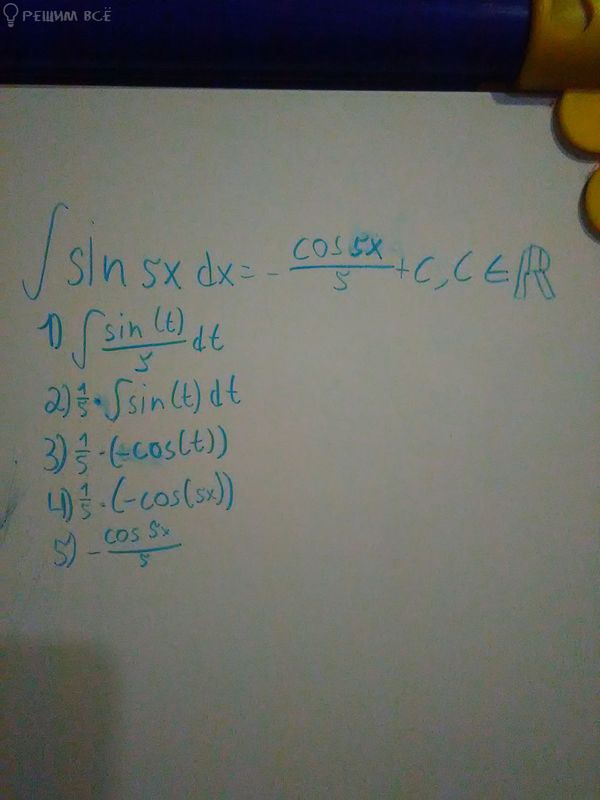 РЕШИМ ВСЁ
∫ sin 5x dx = - cos 5x / 5 + C, C ∈ ℝ
1) ∫ sin(t) / 5 dt
2) 1/5 · ∫ sin(t) dt
3) 1/5 · (-cos(t))
4) 1/5 · (-cos(5x))
5) - cos 5x / 5